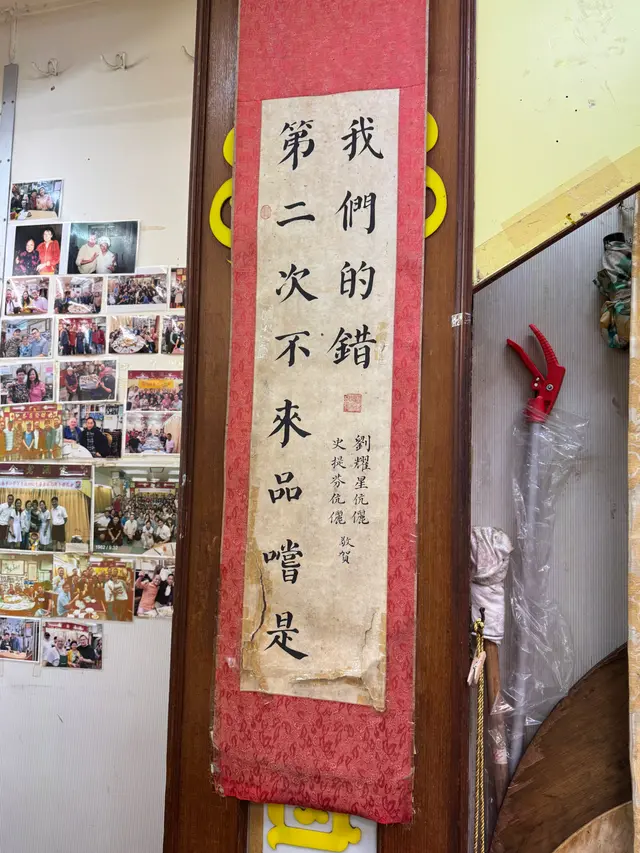 第二次不來品嚐是
我們的錯
劉耀星伉儷
史提芬伉儷
敬賀